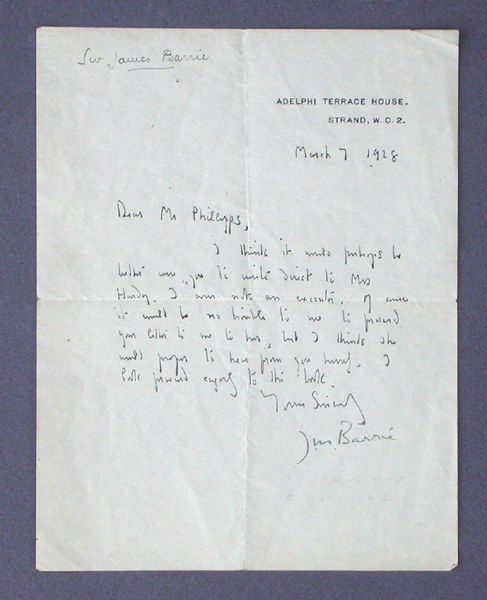 Sir James Barrie
ADELPHI TERRACE HOUSE,
STRAND, W.C.2.
March 7 1928
Dear Mr Phillipps,
I think it would perhaps be
better were you to write direct to Mrs
Hardy. I am not an executor. Of course
it would be no trouble to me to forward
your letter to me to her, but I think she
would prefer to hear from you herself. I
look forward eagerly to the book.
Yours Sincerely
J.M. Barrie